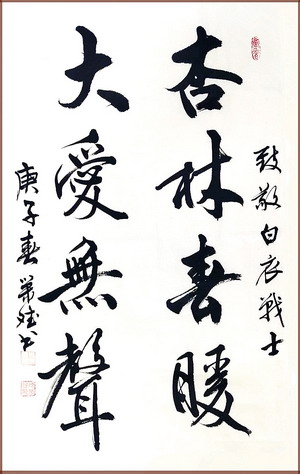 致敬白衣戰士
杏林春暖
大愛無聲
庚子春